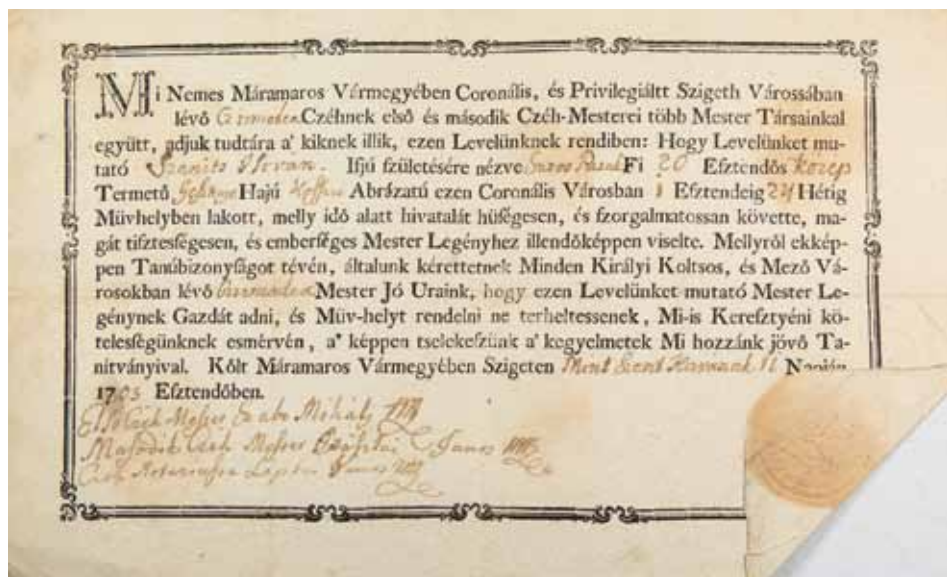 Mi Nemes Máramaros Vármegyében Coronális, és Privilegiáltt Szigeth Várossában
lévő Czéhnek első és második Czéh-Mesterei több Mester Társainkal
együtt, adjuk tudtára a' kiknek illik, ezen Levelünknek rendiben: Hogy Levelünket mu-
tató Ifjú születésére nézve Fi 20 Esztendős közep
Termetű Hajú Abrázatú ezen Coronális Városban 1 Esztendeig 24 Hétig
Müvhelyben lakott, melly idő alatt hivatalát hűségesen, és szorgalmatossan követte, ma-
gát tisztességesen, és emberséges Mester Legényhez illendőképpen viselte. Mellyről ekkép-
pen Tanúbizonyságot tévén, általunk kérettetnek Minden Királyi Koltsos, és Mező Vá-
rosokban lévő Mester Jó Uraink, hogy ezen Levelünket mutató Mester Le-
génynek Gazdát adni, és Müv-helyt rendelni ne terheltessenek, Mi-is Keresztyéni kö-
telességünknek esmérvén, a' képpen tselekeszünk a' kegyelmetek Mi hozzánk jövő Ta-
nítványival. Költ Máramaros Vármegyében Szigeten Mind Szent Havának 11 Napján
17 Esztendőben.
Első Czéh Mester Szabo Mihály
Masodik Czéh Mester Janos
Czéh Notariussa Janos